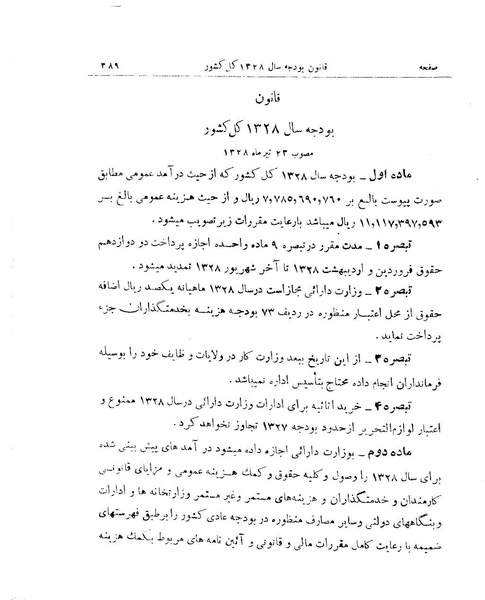 صفحه قانون بودجه سال ۱۳۲۸ كل كشور ۳۸۹
قانون
بودجه سال ۱۳۲۸ كل كشور
مصوب ۲۳ تیر ماه ۱۳۲۸
ماده اول ـ بودجه سال ۱۳۲۸ كل كشور كه از حیث درآمد عمومی مطابق
صورت پیوست بالغ بر ۷٫۷۸۵٫۶۹۰٫۷۶۰ ریال و از حیث هزینه عمومی بالغ بسر
۱۱٫۱۱۷٫۳۹۷٫۵۹۳ ریال میباشد بارعایت مقررات زیر تصویب میشود .
تبصره ۱ ـ مدت مقرر در تبصره ۹ ماده واحده اجازه پرداخت دو دوازدهم
حقوق فروردین و اردیبهشت ۱۳۲۸ تا آخر شهریور ۱۳۲۸ تمدید میشود .
تبصره ۲ ـ وزارت دارائی مجاز است در سال ۱۳۲۸ ماهیانه یكصد ریال اضافه
حقوق از محل اعتبار منظوره در ردیف ۷۳ بودجه هزینه بخدمتگذاران جزء
پرداخت نماید .
تبصره ۳ ـ از این تاریخ ببعد وزارت كار در ولایات و ظایف خود را بوسیله
فرمانداران انجام داده محتاج بتأسیس اداره نمیباشد .
تبصره ۴ ـ خرید اثاثیه برای ادارات وزارت دارائی در سال ۱۳۲۸ ممنوع و
اعتبار لوازم‌التحریر از حدود بودجه ۱۳۲۷ تجاوز نخواهد كرد .
ماده دوم ـ بوزارت دارائی اجازه داده میشود در آمد های پیش بینی شده
برای سال ۱۳۲۸ را وصول و كلیه حقوق و كمك هزینه عمومی و مزایای قانونی
كارمندان و خدمتگذاران و هزینه‌های مستمر وغیر مستمر وزارتخانه ها و ادارات
وبنگاههای دولتی وسایر مصارف منظوره در بودجه عادی كشور را برطبق فهرستهای
ضمیمه با رعایت كامل مقررات مالی و قانونی و آئین نامه های مربوط بكمك هزینه